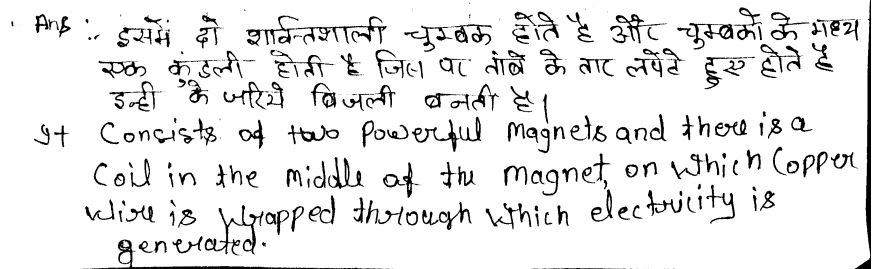 Ans :. इसमें दो शक्तिशाली चुम्बक होते है और चुम्बको के मध्य
एक कुंडली होती है जिस पर तांबे के तार लपेटे हुए होते है
इन्ही के जरिये बिजली बनती है।
It Consists of two Powerful magnets and there is a
Coil in the middle of the magnet, on which Copper
wire is wrapped through which electricity is
generated.